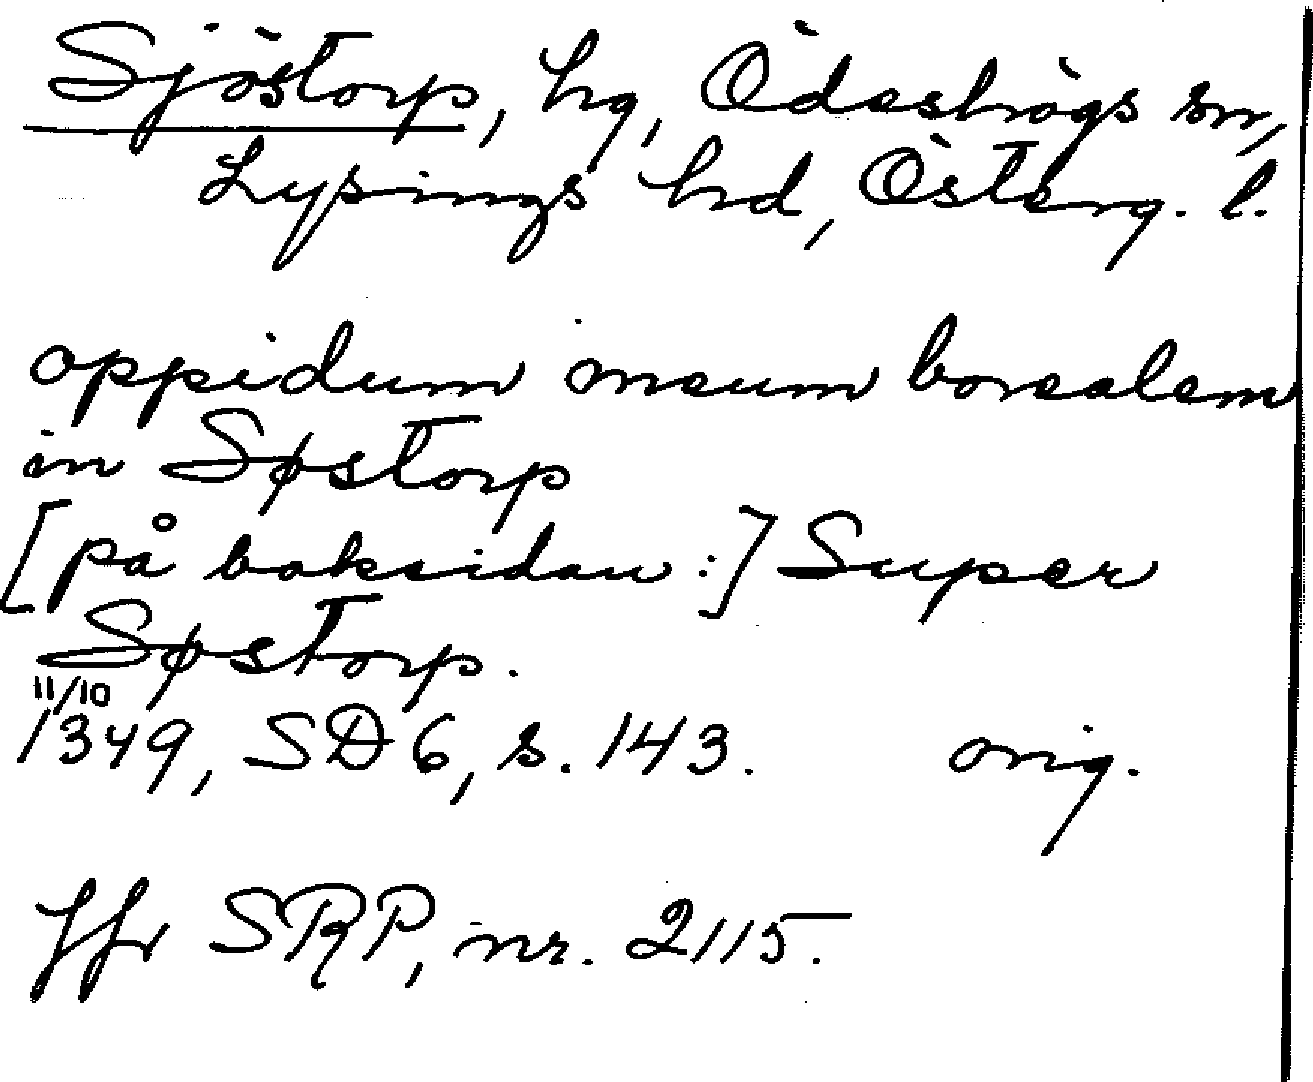 Sjöstorp, hg, Ödeshögs sn,
Lysings hd, Österg. l.
oppidum meum borealem
in Søstorp
[på baksidan:] Super
Søstorp.
11/10
1349, SD 6, s. 143. orig.
Jfr SRP, nr. 2115.